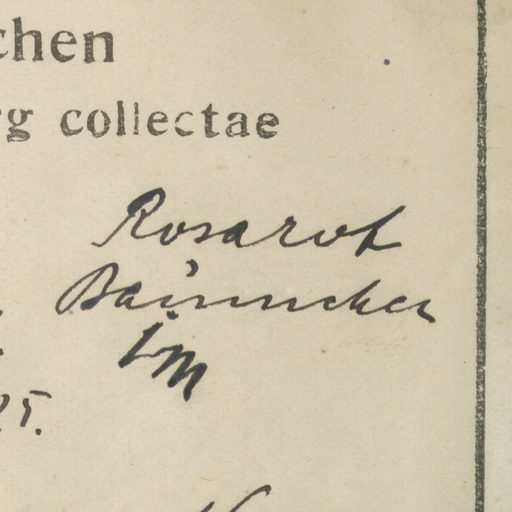 chen
rg collectae
Rosarot
Bäumchen
1m
25.